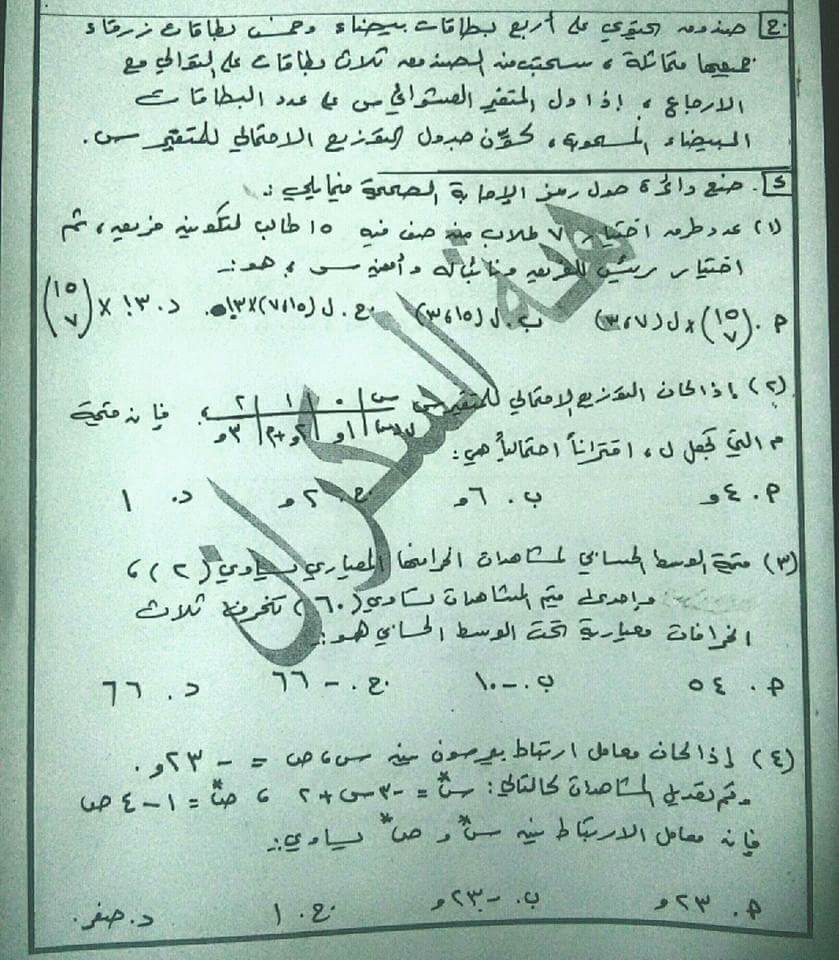 ج صندوق يحتوي على أربع بطاقات بيضاء وخمس بطاقات زرقاء
جميعها متماثلة ، سحبت من الصندوق ثلاث بطاقات على التوالي مع
الارجاع ، إذا دل المتغير العشوائي س على عدد البطاقات
البيضاء المسحوبة ، كوّن جدول التوزيع الاحتمالي للمتغير س .
د . ضع دائرة حول رمز الإجابة الصحيحة فيما يلي :
(١) عدد طرق اختيار ٧ طلاب من صف فيه ١٥ طالب لتكوين فريق ، ثم
اختيار رئيس للفريق ونائباً له وأمين سر ، هو :
م . (١٥ ٧) × ل(٧،٣) ب . ل(١٥،٣) ج . ل(١٥،٧)×٣! د . ٣! × (١٥ ٧)
(٢) إذا كان التوزيع الاحتمالي للمتغير س
س ٠ ١ ٢ ، فإن قيمة
ل(س) ١و ٢و+م ٣و
م التي تجعل ل ، اقتراناً احتمالياً هي :
م . ٤و ب . ٦و ج . ٢و د . ١
(٣) قيمة الوسط الحسابي لمشاهدات انحرافها المعياري يساوي (٢) ،
وإحدى قيم المشاهدات تساوي (٦٠) تنحرف ثلاث
انحرافات معيارية تحت الوسط الحسابي هو :
م . ٥٤ ب . -١٠ ج . -٦٦ د . ٦٦
(٤) إذا كان معامل ارتباط بيرسون بين س ، ص = - ٢٣و .
وتم تعديل المشاهدات كالتالي : س* = -٣س + ٢ ، ص* = ١ - ٤ص
فإن معامل الارتباط بين س* و ص* يساوي :
م . ٢٣و ب . -٢٣و ج . ١ د . صفر .
هبة السكران